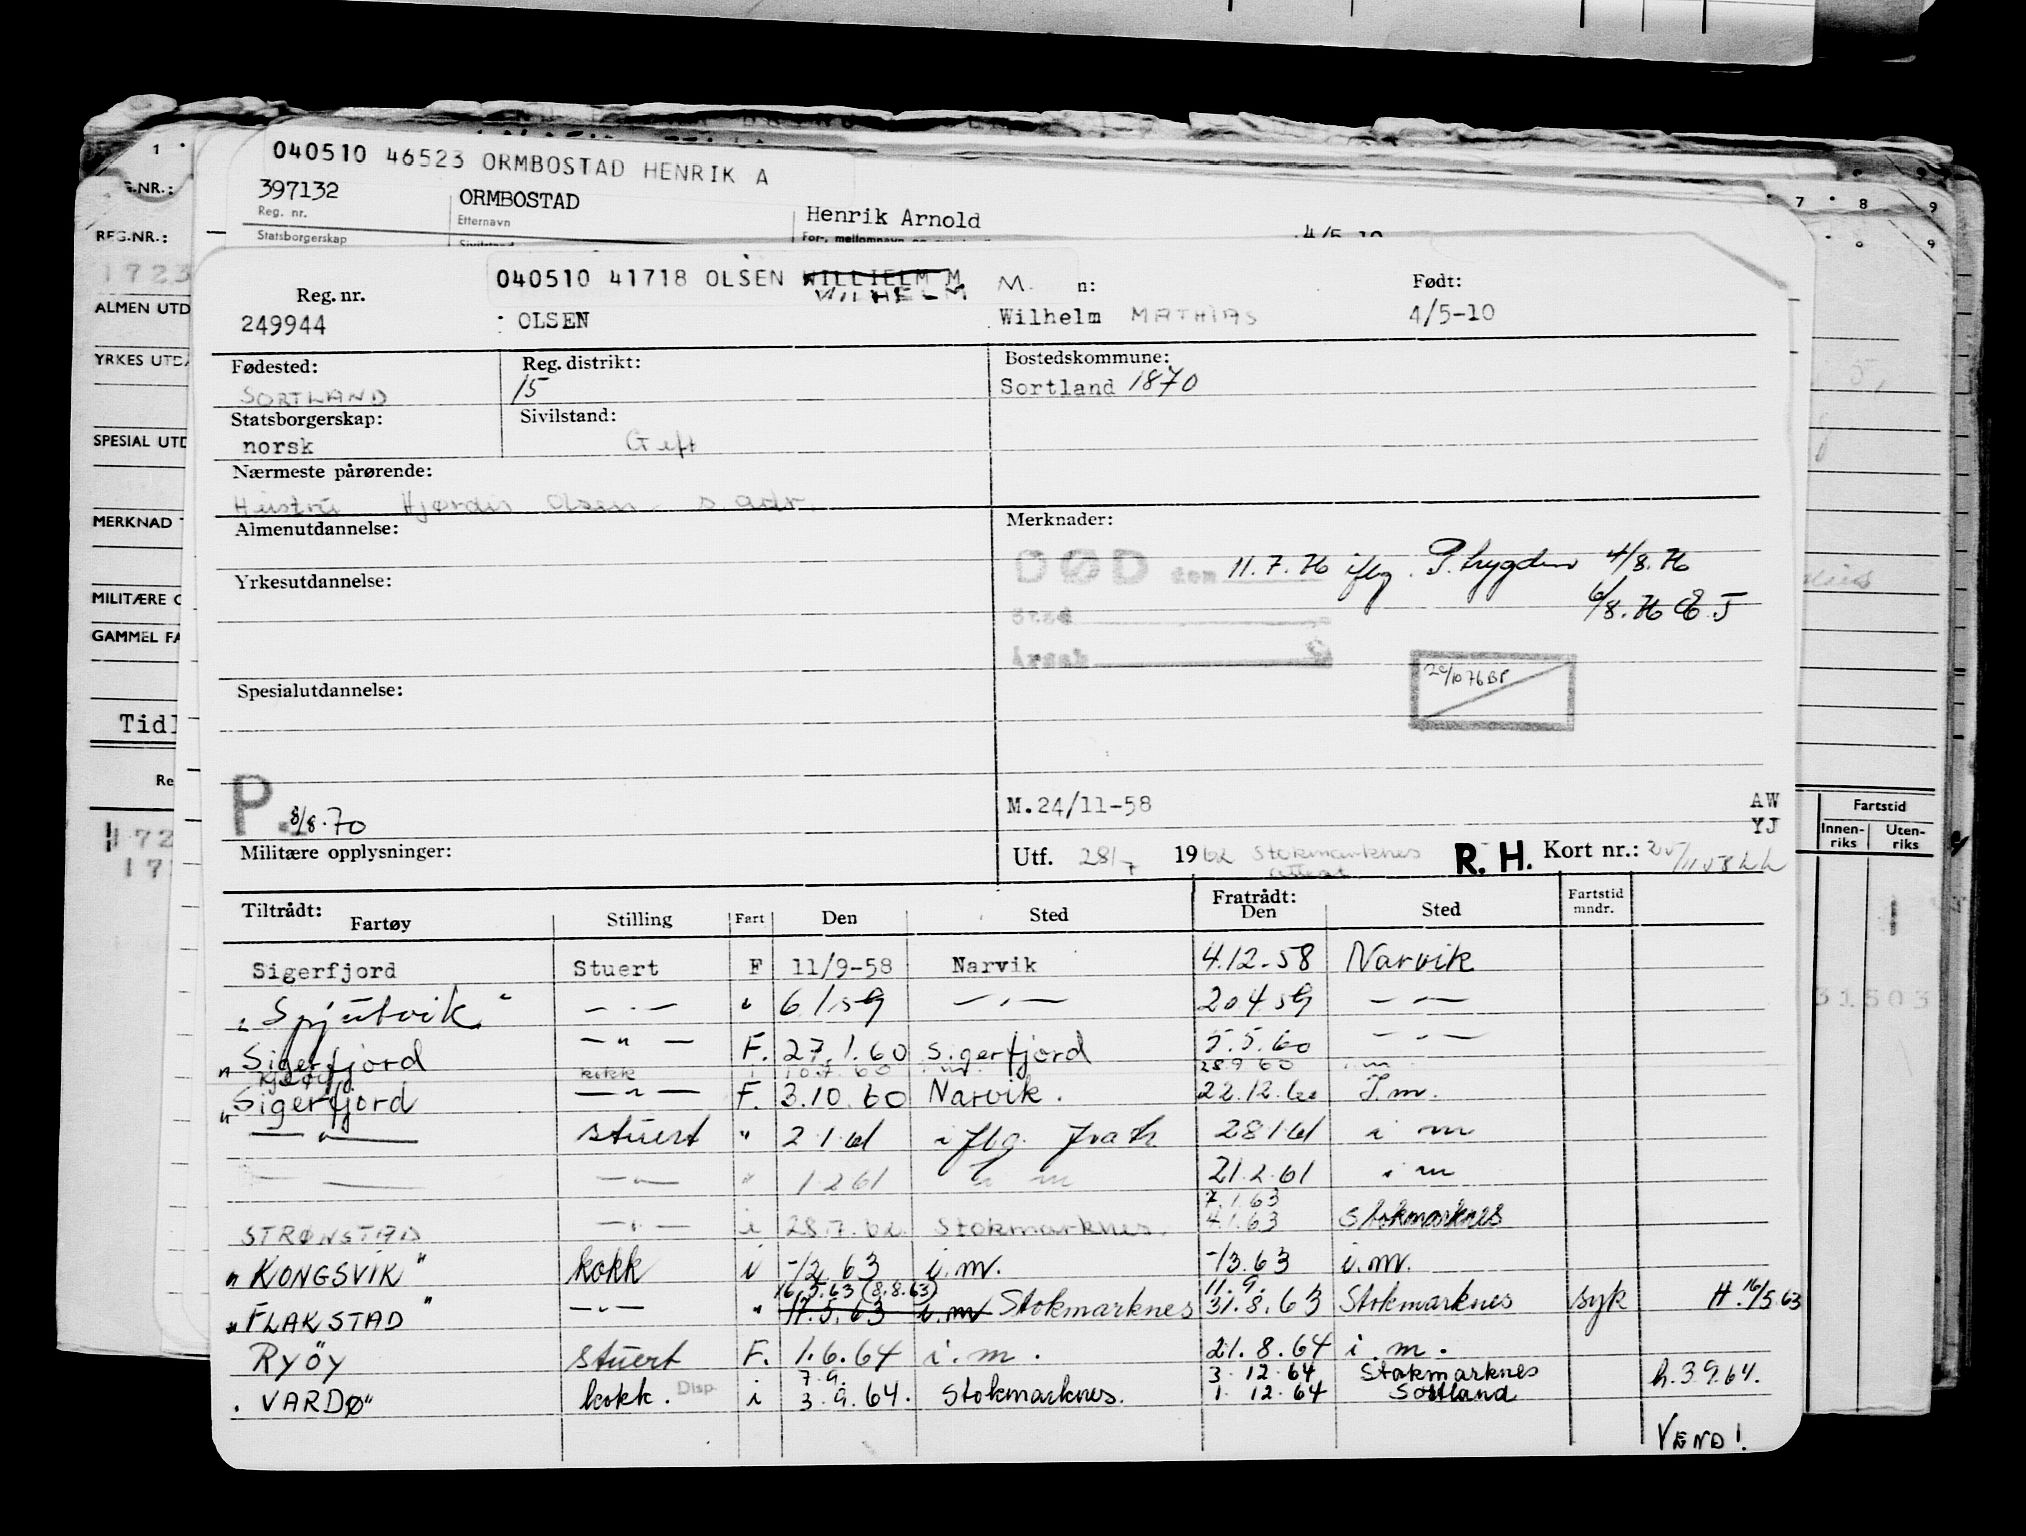 040510 46523 ORMBOSTAD HENRIK A
397132 ORMBOSTAD Henrik Arnold 4/5 10
Reg. nr. Etternavn
Statsborgerskap
REG.NR.:
1723
ALMEN UTD
YRKES UTD
SPESIAL UTD
MERKNAD
MILITÆRE
GAMMEL FA
Tidl
040510 41718 OLSEN WILLIELM M
WILHELM M. n: Født:
Reg. nr.
249944 OLSEN Wilhelm MATHIAS 4/5-10
Fødested: Reg. distrikt: Bostedskommune:
SORTLAND 15 Sortland 1870
Statsborgerskap: Sivilstand:
norsk Gift
Nærmeste pårørende:
Hustru Hjørdis Olsen s. adr.
Almenutdannelse: Merknader:
DØD den 11.7.76 iflg. P.trygden 4/8.76
Yrkesutdannelse:
Sted 6/8.76
Årsak
Spesialutdannelse:
20/10 76 BP
P. 8/8.70
M.24/11-58 AW
YJ
Militære opplysninger: Utf. 28/7 1962 Stokmarknes R. H. Kort nr.:
attest
Tiltrådt: Fratrådt:
Fartøy Stilling Fart Den Sted Den Sted Fartstid mndr.
Fartstid
Innen-riks Uten-riks
Sigerfjord Stuert F 11/9-58 Narvik 4.12.58 Narvik
"Spjutvik" — " — " 6/1.59 — " — 20.4.59 — " —
"Sigerfjord — " — F. 27.1.60 Sigerfjord 5.5.60 — " —
Kjeøy kokk i 10.7.60 i.m. 28.9.60 i.m.
"Sigerfjord — " — F. 3.10.60 Narvik. 22.12.60 I.m.
— " — Stuert " 2.1.61 iflg. 28.1.61 i m
— " — — " — " 1.2.61 i m 21.2.61 i m
7.1.63
STRØNSTAD — " — i 28.7.62 Stokmarknes. 4.1.63 Stokmarknes
"KONGSVIK" kokk i -/2.63 i.m. -/3.63 i.m.
16.5.63 (8.8.63) 11.9.
"FLAKSTAD" — " — " 17.5.63 i.m Stokmarknes 31.8.63 Stokmarknes syk H.16/5.63
Ryöy stuert F. 1.6.64 i.m. 21.8.64 i.m.
7.9. 3.12.64 Stokmarknes
"VARDØ" kokk. Disp i 3.9.64. Stokmarknes. 1.12.64 Sortland h.3.9.64.
VEND!